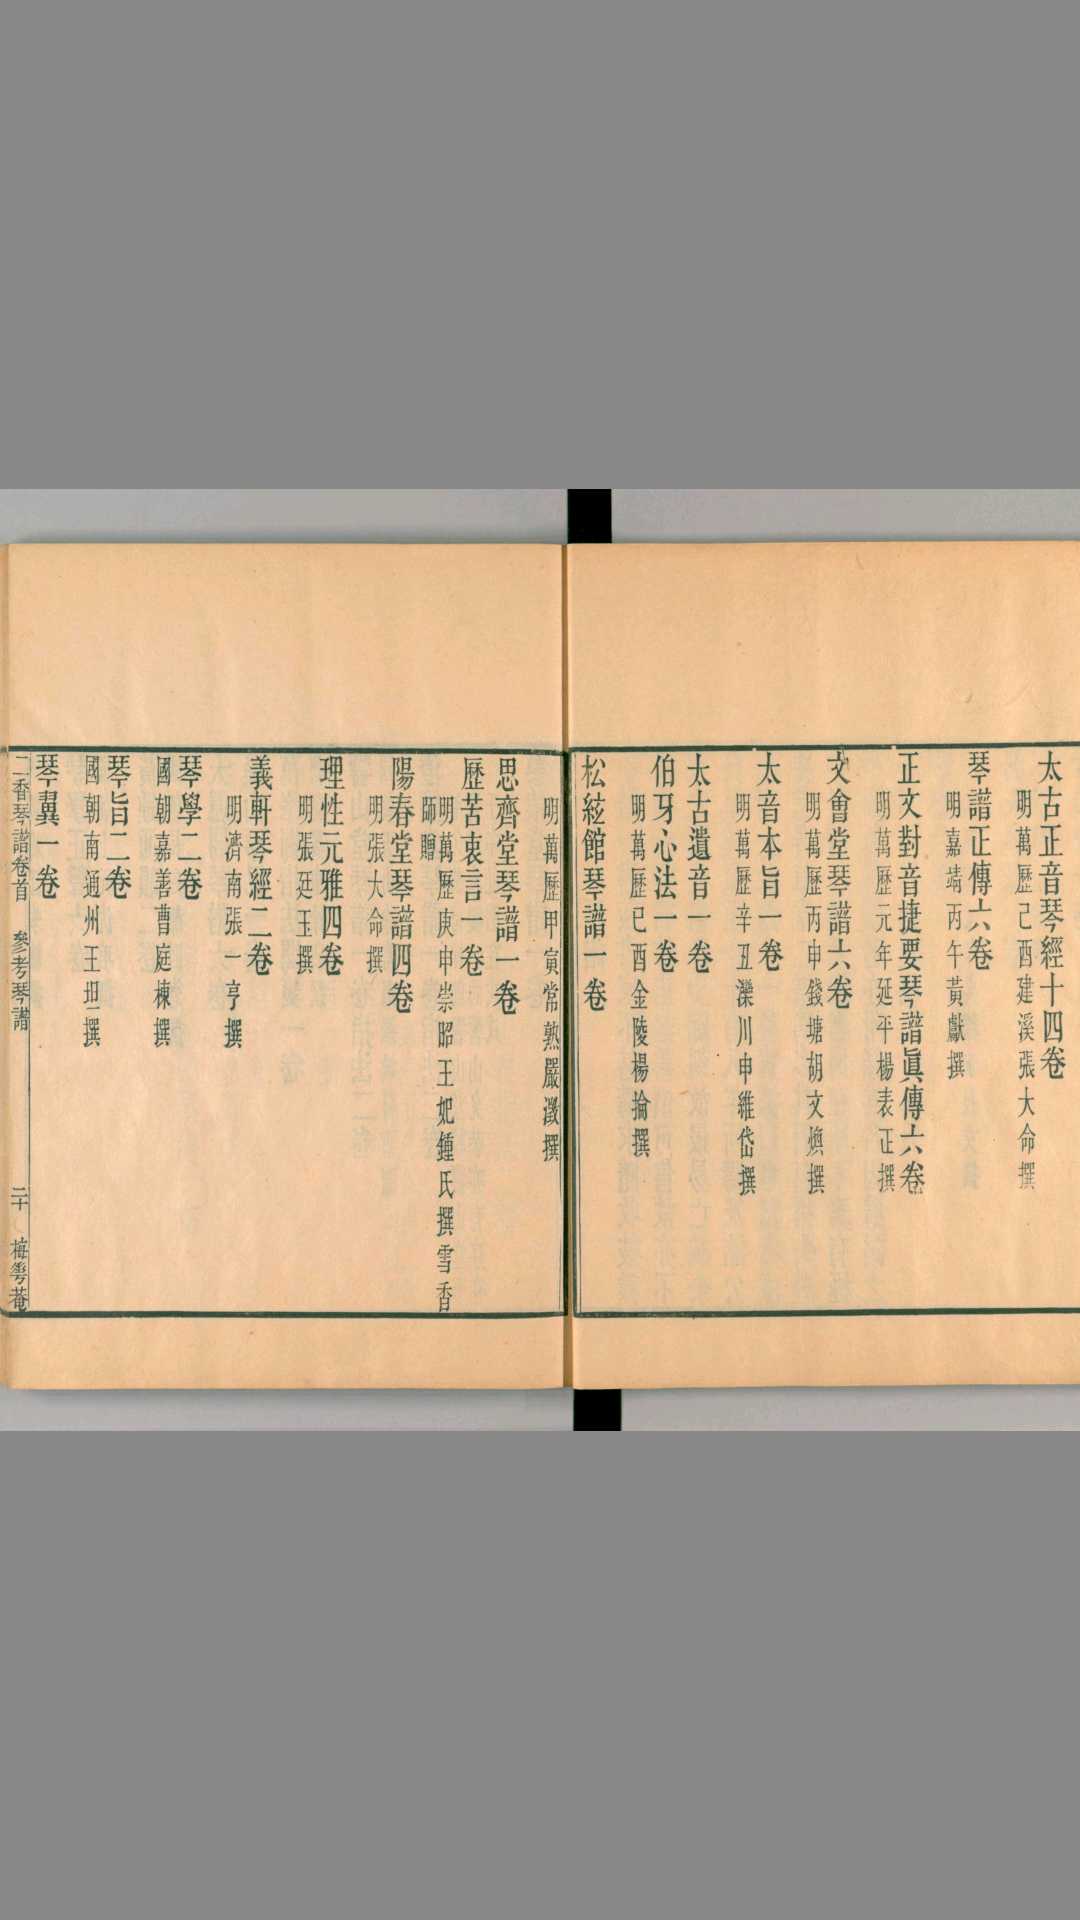 太古正音琴經十四卷
明萬歷己酉建溪張大命撰
琴譜正傳六卷
明嘉靖丙午黃獻撰
正文對音捷要琴譜眞傳六卷
明萬歷元年延平楊表正撰
文會堂琴譜六卷
明萬歷丙申錢塘胡文煥撰
太音本旨一卷
明萬歷辛丑濼川申維岱撰
太古遺音一卷
伯牙心法一卷
明萬歷已酉金陵楊掄撰
松絃館琴譜一卷
明萬歷甲寅常熟嚴澂撰
思齊堂琴譜一卷
歷苦衷言一卷
明萬歷庚申崇昭王妃鍾氏撰雪香
師贈
陽春堂琴譜四卷
明張大命撰
理性元雅四卷
明張廷玉撰
義軒琴經二卷
明濟南張一亨撰
琴學二卷
國朝嘉善曹庭棟撰
琴旨二卷
國朝南通州王坦撰
琴翼一卷
二香琴譜卷首 參考琴譜 二十 梅雩菴